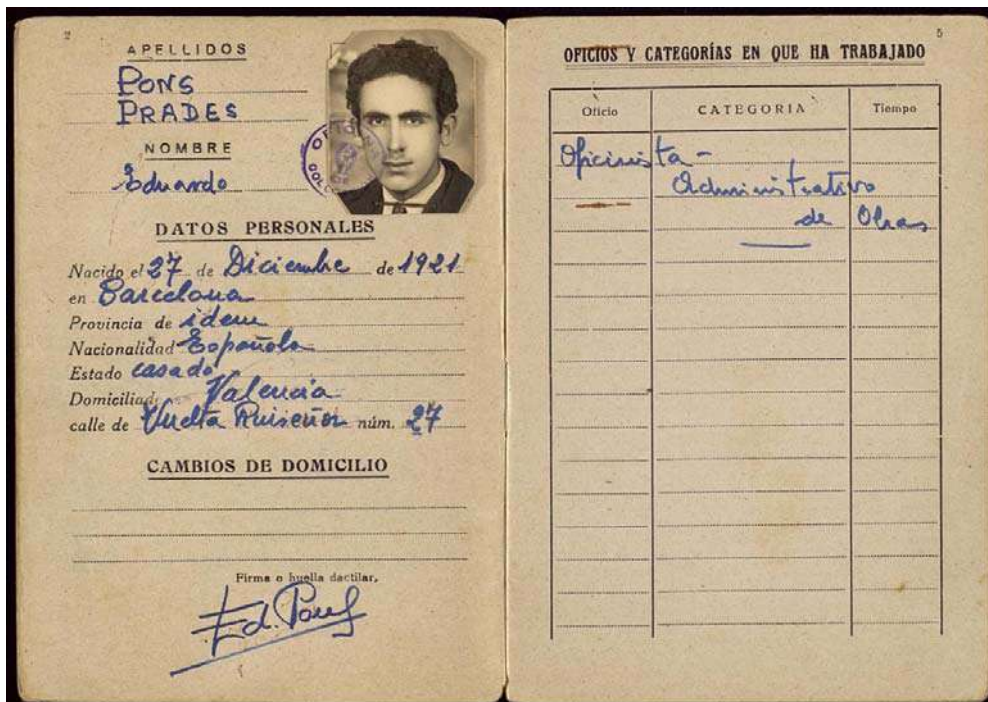 2
APELLIDOS
PONS
PRADES
NOMBRE
Eduardo
DATOS PERSONALES
Nacido el 27 de Diciembre de 1921
en Barcelona
Provincia de idem
Nacionalidad Española
Estado casado
Domiciliado Valencia
calle de Vuelta Ruiseñor núm. 27
CAMBIOS DE DOMICILIO
Firma o huella dactilar,
Ed. Pons
5
OFICIOS Y CATEGORÍAS EN QUE HA TRABAJADO
Oficio CATEGORIA Tiempo
Oficinista -
Administrativo
de Obras